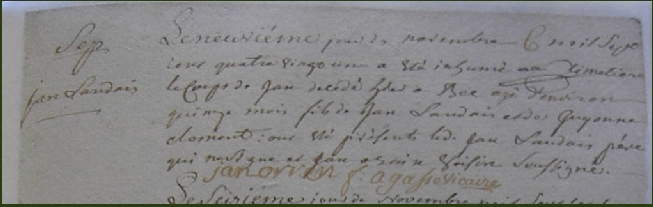 Sep. Le neuviéme jour de novembre mil sept
cens quatre vingt un a été inhumé au Cimetiere
jan Landais le Corps de Jan decedé hier a Bec agé d'environ
quinze mois fils de Jan Landais et de Guyonne
clement: ont été présents led. Jan Landais père
qui ne signe et Jan orain Voisin Soussigné.
jan orin f. agasse vicaire
Le Seiziéme jour de Novembre mil Sept cens